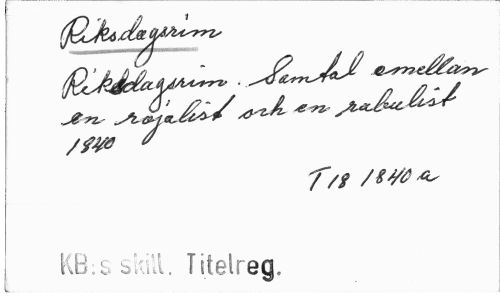 Riksdagsrim
Riksdagsrim. Samtal emellan
en rojalist och en rabulist
1840
T 18 1840 a
KB:s skill. Titelreg.